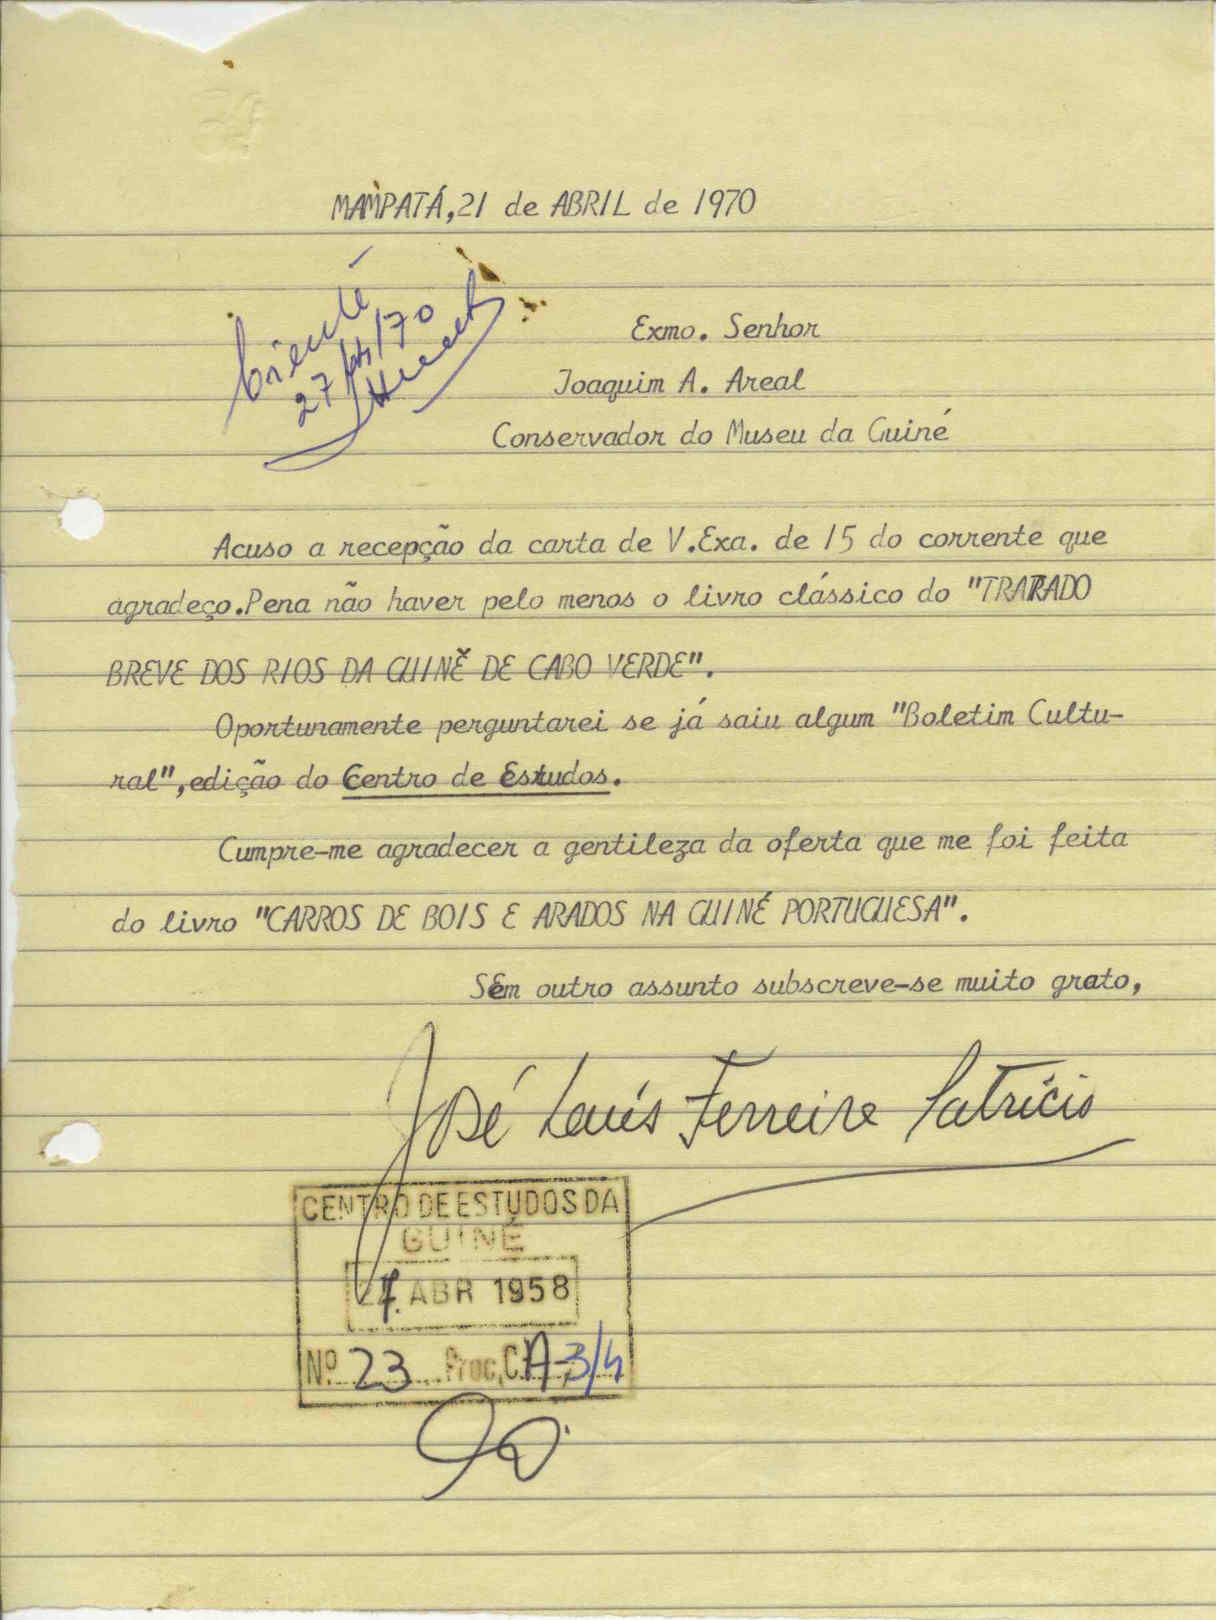 MAMPATÁ,21 de ABRIL de 1970
Ciente
27/4/70
Exmo. Senhor
Joaquim A. Areal
Conservador do Museu da Guiné
Acuso a recepção da carta de V.Exa. de 15 do corrente que
agradeço.Pena não haver pelo menos o livro clássico do "TRATADO
BREVE DOS RIOS DA GUINÉ DE CABO VERDE".
Oportunamente perguntarei se já saiu algum "Boletim Cultu-
ral",edição do Centro de Estudos.
Cumpre-me agradecer a gentileza da oferta que me foi feita
do livro "CARROS DE BOIS E ARADOS NA GUINÉ PORTUGUESA".
Sem outro assunto subscreve-se muito grato,
José Luís Ferreira Patrício
CENTRO DE ESTUDOS DA
GUINÉ
27. ABR 1958
Nº 23 Proc, C. A-3/4